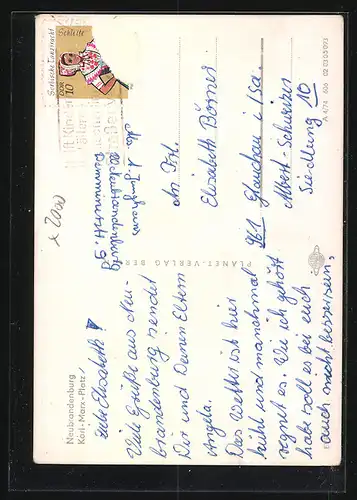 Neubrandenburg
Karl-Marx-Platz
Liebe Elisabeth!
Viele Grüße aus Neu-
brandenburg sendet
Dir und Deinen Eltern
Angela.
Das Wetter ist hier
kühl und manchmal
regnet es. Wie ich gehört
habe soll es bei euch
auch nicht besser sein,
PLANET-VERLAG BER
Sorbische Tanztracht
Schleife
DDR
10
Neubrandenburg
Demminerstr. 9
An Frl.
Elisabeth Börner
961 Glauchau i/Sa.
Albert-Schweitzer
Siedlung 10
A 4/74 636 02 03 05 093
x 2000